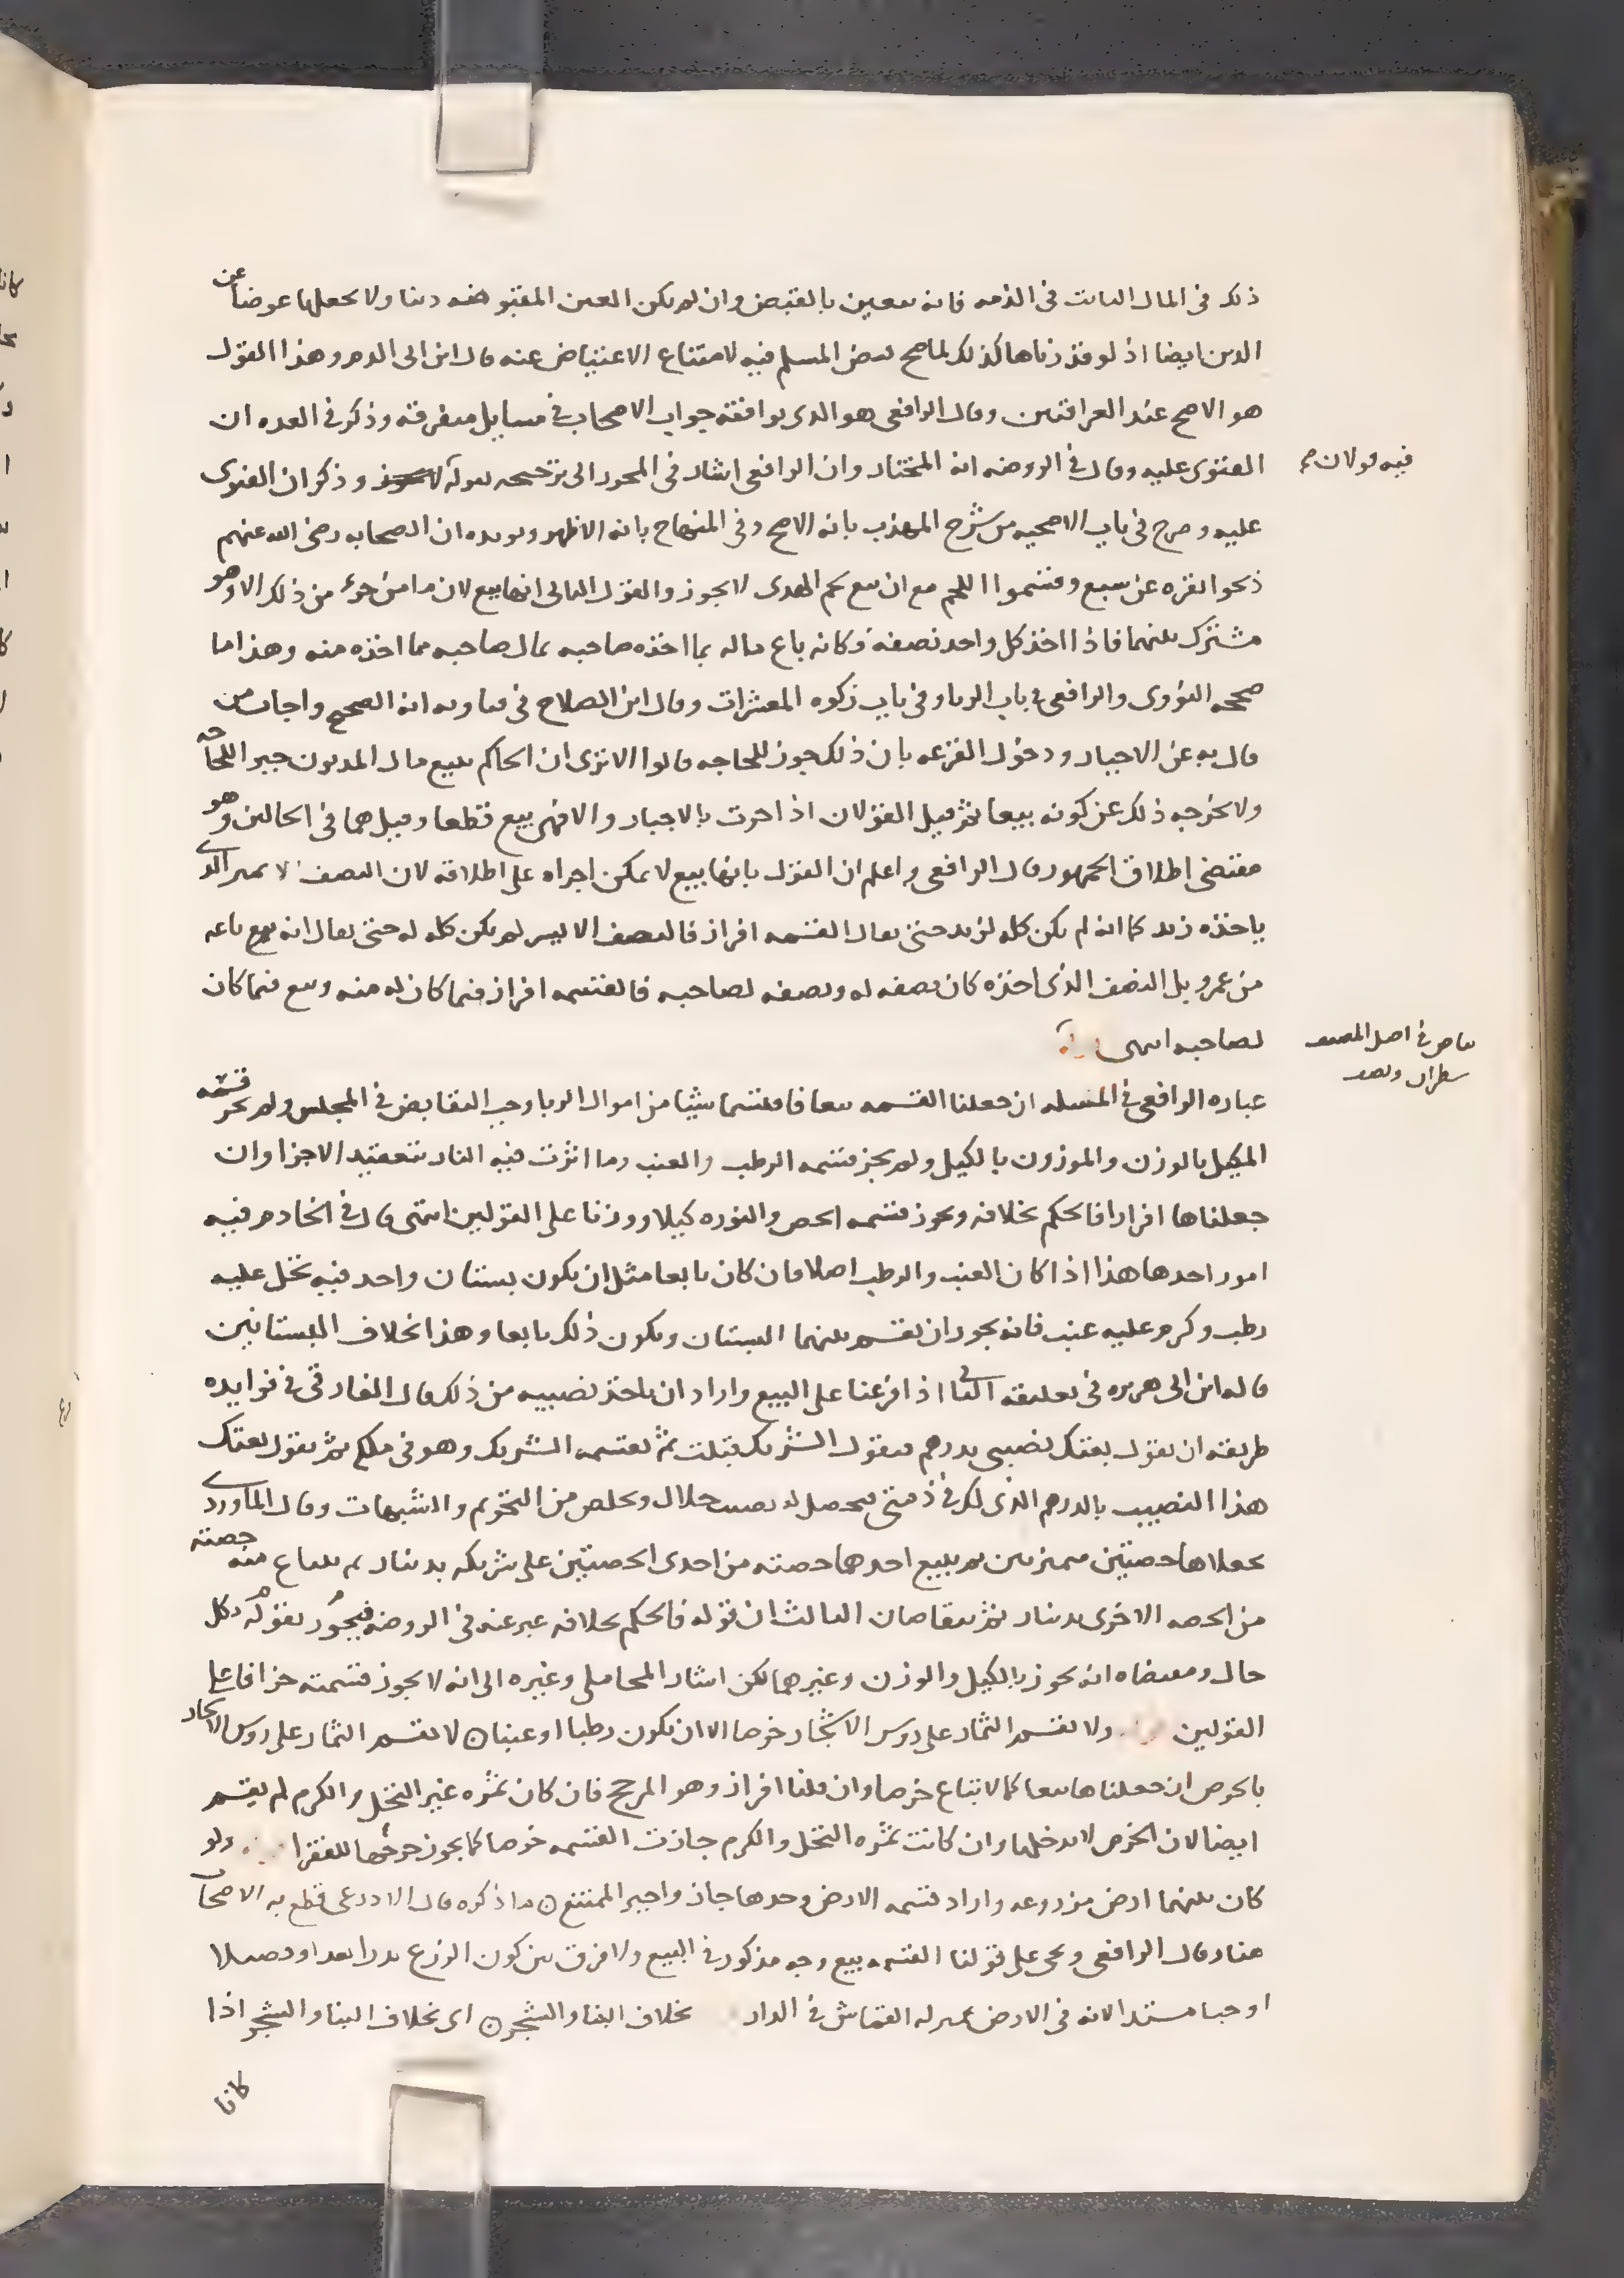 ذلك في المال الثابت في الذمه فانه يتعين بالقبض وان لم يكن العين المقبوضه دينا ولا يجعلها عوضا عن
الدين ايضا اذ لو قدرناها كذلك لما صح قبض المسلم فيه لامتناع الاعتياض عنه قال ابن ابي الدم وهذا القول
هو الاصح عند العراقيين وقال الرافعي هو الذي يوافقه جواب الاصحاب في مسايل متفرقه وذكر في العده ان
الفتوى عليه وقال في الروضه انه المختار وان الرافعي اشار في المحرر الى ترجيحه وذكر ان الفتوى
فيه قولان صح
عليه وصرح في باب الاضحيه من شرح المهذب بانه الاصح وفي المنهاج بانه الاظهر ويويده ان الصحابه رضي الله عنهم
ذبحوا البقره عن سبع وقتسموا اللحم مع ان بيع لحم الهدى لا يجوز والقول الثاني انها بيع لان ما من جزء من ذلك الا وهو
مشترك بينهما فاذا اخذ كل واحد نصفه فكانه باع ماله بما اخذه صاحبه بمال صاحبه مما اخذه منه وهذا ما
صححه النووى والرافعي في باب الربا وفي باب زكوه المعشرات وقال ابن الصلاح في فتاويه انه الصحيح واجاب من
قال به عن الاجبار ودخول القرعه بان ذلك جوز للحاجه قالوا الا ترى ان الحاكم يبيع مال المديون جبرا للحاجه
ولا يخرجه ذلك عن كونه بيعا ثم قيل القولان اذا جرت بالاجبار والا فهى بيع قطعا وقيل هما في الحالين وهو
مقتضى اطلاق الجمهور قال الرافعي واعلم ان القول بانها بيع لا يمكن اجراه على اطلاقه لان النصف الذي
ياخذه زيد كما انه لم يكن كله لزيد حتى يقال القسمه افراز فالنصف الايسر لم يكن كله له حتى يقال انه بيع باعه
من عمرو بل النصف الذى اخذه كان نصفه له ونصفه لصاحبه فالقسمه افراز فيما كان له منه وبيع فيما كان
لصاحبه انتهى
بياض في اصل المصنف
سطران ونصف
عباره الرافعي في المسله ان جعلنا القسمه بيعا فاقتسما شيئا من اموال الربا وجب التقابض في المجلس ولم تجز قسمه
المكيل بالوزن والموزون بالكيل ولم يجز قسمه الرطب والعنب وما اثرت فيه النار بتعقيد الاجزا وان
جعلناها افرازا فالحكم بخلافه ويجوز قسمه الجص والنوره كيلا ووزنا على القولين انتهى قال في الخادم فيه
امور احدها هذا اذا كان العنب والرطب اصلا فان كان تابعا مثل ان يكون بستان واحد فيه نخل عليه
رطب وكرم عليه عنب فانه يجوز ان يقسم بينهما البستان ويكون ذلك تابعا وهذا بخلاف البستانين
قاله ابن ابي هريره في تعليقه الثاني اذا فرعنا على البيع واراد ان ياخذ نصيبه من ذلك قال الفارقى في فوايده
طريقه ان يقول بعتك نصيبى بدرهم فيقول الشريك قبلت ثم يقتسمه الشريك وهو في ملكه ثم يقول بعتك
هذا النصيب بالدرهم الذى لك في ذمتى فيحصل له نصيب حلال ويخلص من التحريم والشبهات وقال الماوردى
يجعلاها حصتين مميزتين ثم يبيع احدهما حصته من احدى الحصتين على شريكه بدينار ثم يبتاع منه حصته
من الحصه الاخرى بدينار ثم يتقاصان الثالث ان قوله فالحكم بخلافه عبر عنه في الروضه فيجوز بقوله كل
حال ومقتضاه انه يجوز بالكيل والوزن وغيرهما لكن اشار المحاملى وغيره الى انه لا يجوز قسمته جزافا على
القولين ولا يقسم الثمار على روس الاشجار خرصا الا ان تكون رطبا او عنبا لا يقسم الثمار على روس الاشجار
بالخرص ان جعلناها بيعا كما لا تباع خرصا وان قلنا افراز وهو المرجح فان كان ثمره غير النخل والكرم لم يقسم
ايضا لان الخرص لا يدخلها وان كانت ثمره النخل والكرم جازت القسمه خرصا كما يجوز خرصها للفقرا ولو
كان بينهما ارض مزروعه واراد قسمه الارض وحدها جاز واجبر الممتنع ما ذكره قال الاذرعي قطع به الاصحاب
هنا وقال الرافعي ويجى على قولنا القسمه بيع وجه مذكور في البيع ولا فرق بين كون الزرع بذرا بعد او قصيلا
او حبا مشتدا لانه في الارض بمنزله القماش في الدار بخلاف البنا والشجر اى بخلاف البنا والشجر اذا
كانا